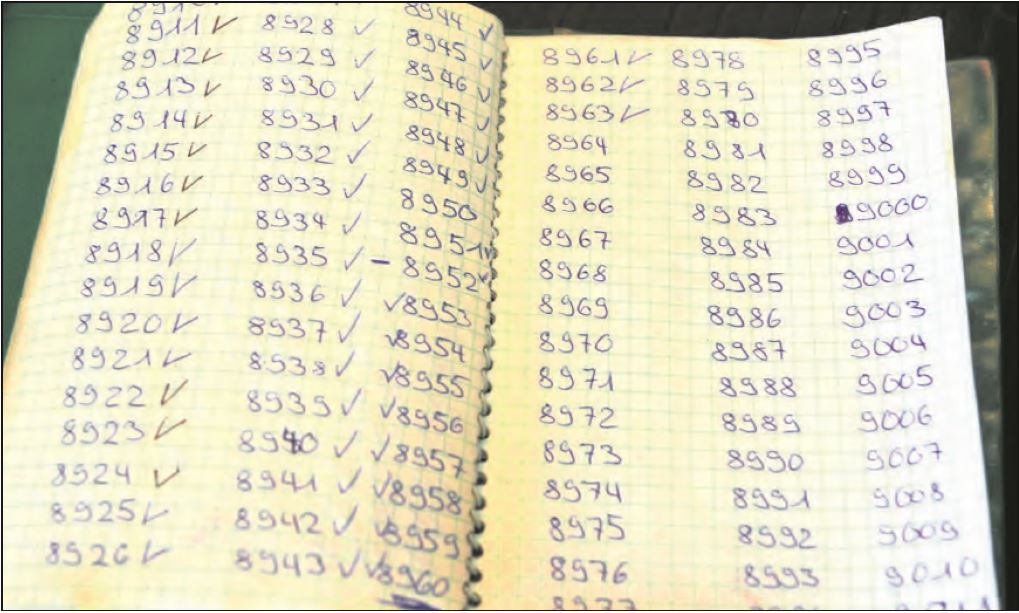 8911 ✓
8912 ✓
8913 ✓
8914 ✓
8915 ✓
8916 ✓
8917 ✓
8918 ✓
8919 ✓
8920 ✓
8921 ✓
8922 ✓
8923 ✓
8924 ✓
8925 ✓
8926 ✓
8928 ✓
8929 ✓
8930 ✓
8931 ✓
8932 ✓
8933 ✓
8934 ✓
8935 ✓
8936 ✓
8937 ✓
8938 ✓
8939 ✓
8940 ✓
8941 ✓
8942 ✓
8943 ✓
8944 ✓
8945 ✓
8946 ✓
8947 ✓
8948 ✓
8949 ✓
8950
8951 ✓
– 8952 ✓
✓ 8953
✓ 8954
✓ 8955
✓ 8956
✓ 8957
✓ 8958
✓ 8959
✓ 8960
8961 ✓
8962 ✓
8963 ✓
8964
8965
8966
8967
8968
8969
8970
8971
8972
8973
8974
8975
8976
8978
8979
8980
8981
8982
8983
8984
8985
8986
8987
8988
8989
8990
8991
8992
8993
8995
8996
8997
8998
8999
9000
9001
9002
9003
9004
9005
9006
9007
9008
9009
9010